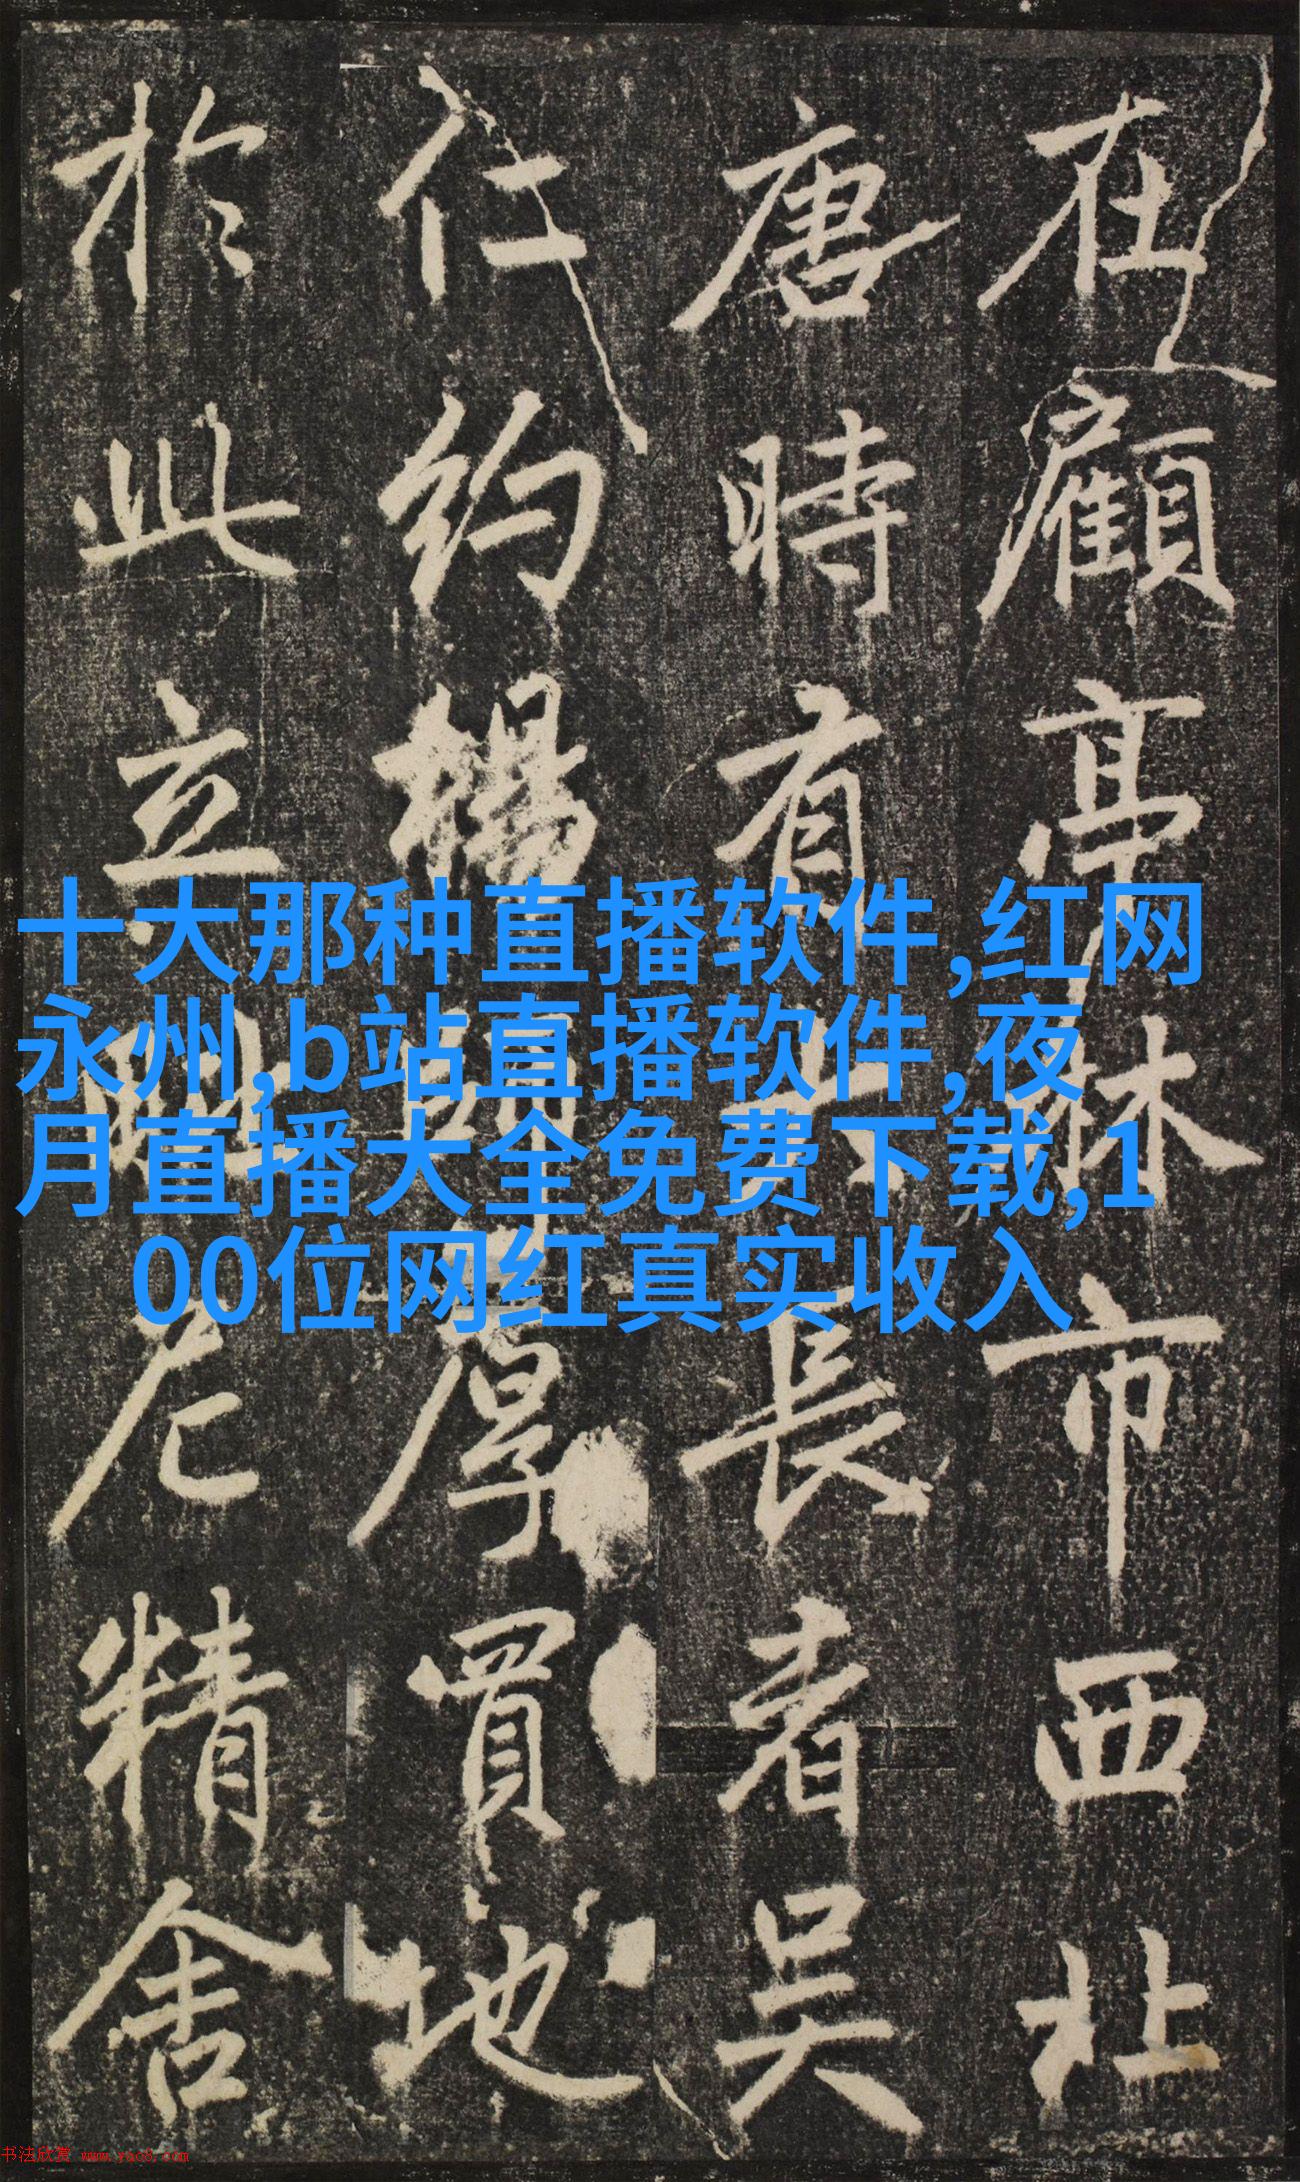 在顧亭林市西北
唐時有長者吳
仁約厚買地
於此立尼精舍
十大那种直播软件,红网
永州,b站直播软件,夜
月直播大全免费下载,1
00位网红真实收入
书法欣赏 www.yac8.com